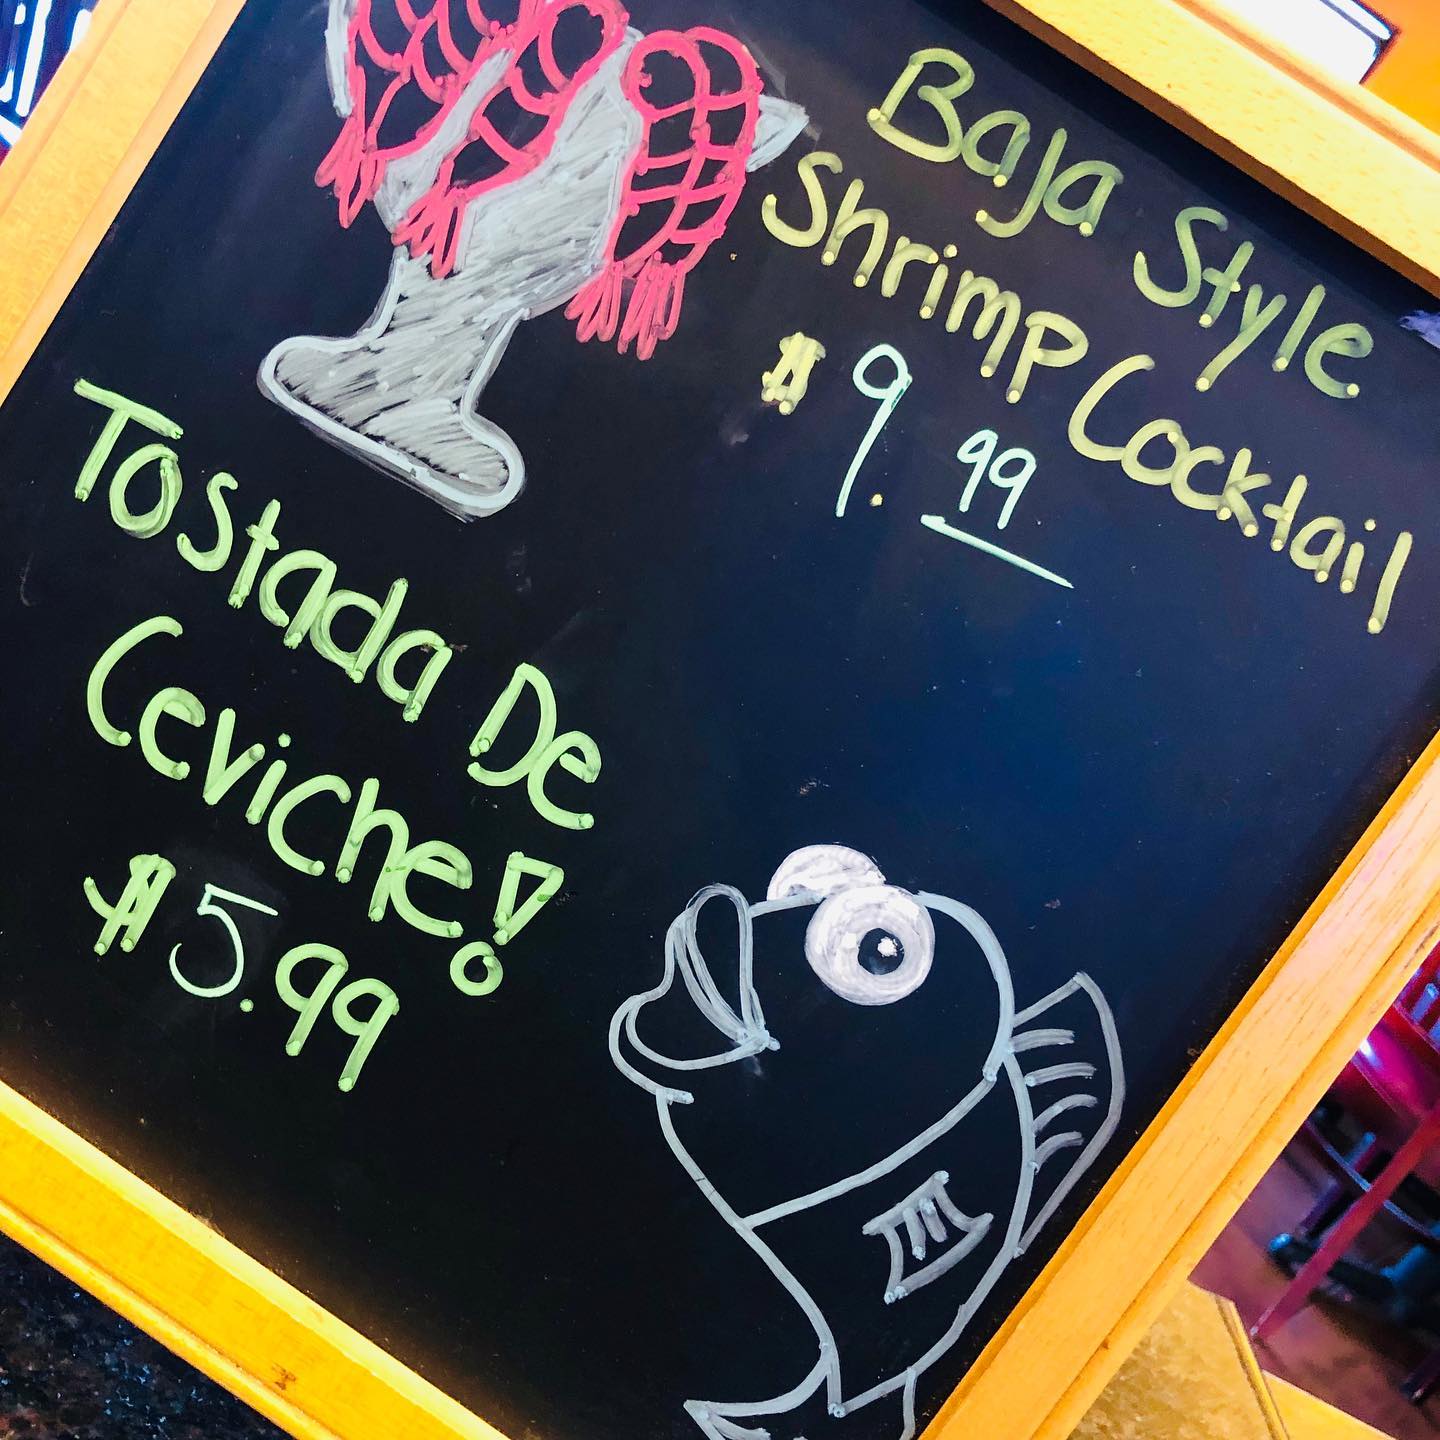 Baja Style
Shrimp Cocktail
$9.99
Tostada De
Ceviche!
$5.99